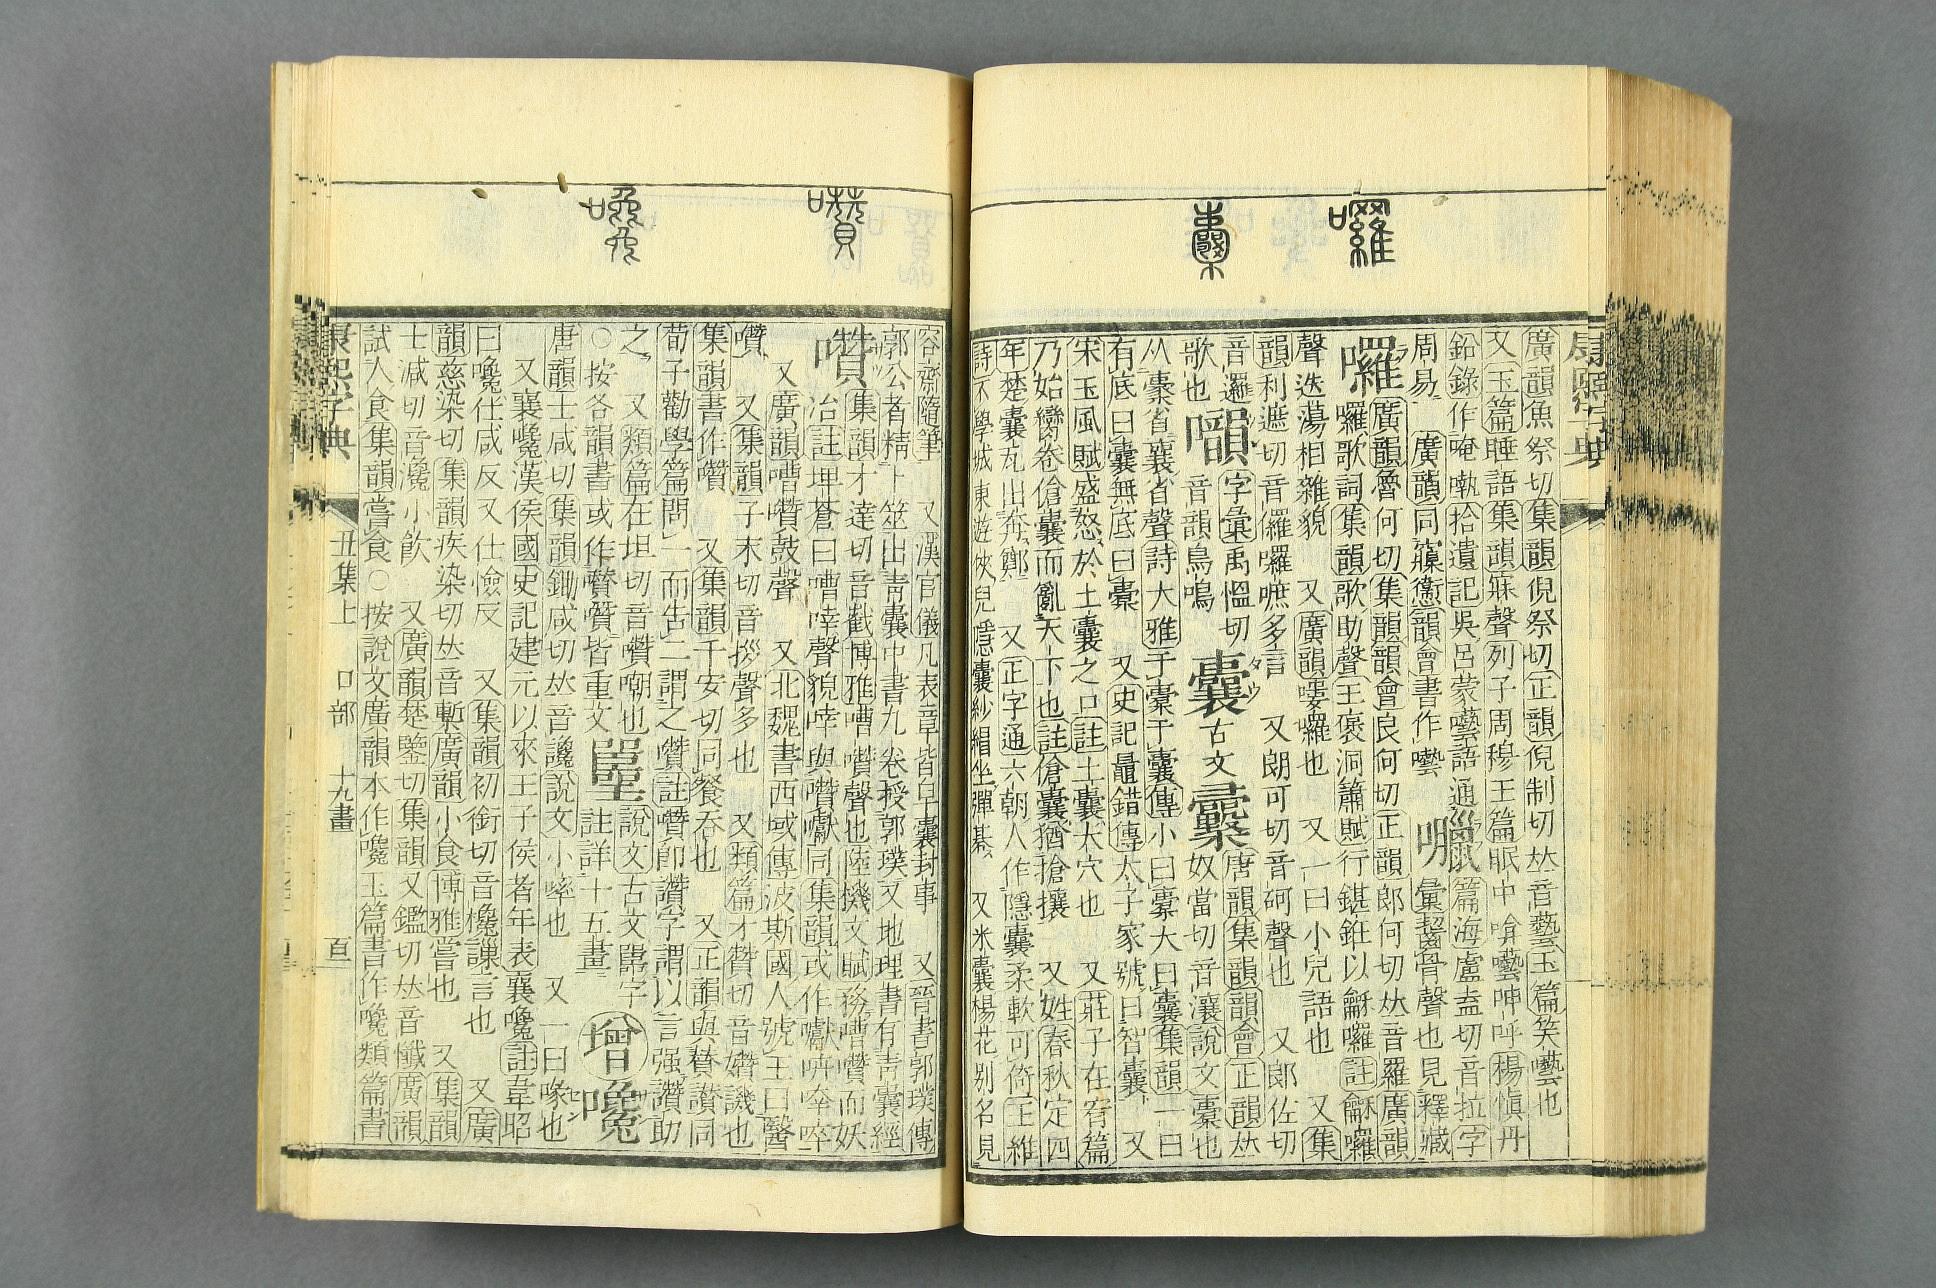 囉
囊
廣韻魚祭切集韻倪祭切正韻倪制切𠀤音藝玉篇笑囈也
又玉篇睡語集韻寐聲列子周穆王篇眠中啽囈呻呼楊愼丹
鉛錄作唵㘈拾遺記吳呂蒙囈語通
篇海盧盍切音拉字
周易 廣韻同讆韻會書作囈
彙齧骨聲也見釋藏
囉 廣韻魯何切集韻韻會良何切正韻郎何切𠀤音羅廣韻
囉歌詞集韻歌助聲王褒洞簫賦行鍖銋以龢囉註龢囉
聲迭蕩相雜貌 又廣韻嘍囉也 又一曰小兒語也 又集
韻利遮切音儸囉嗻多言 又朗可切音砢聲也 又郎佐切
音邏
歌也
字彙禹慍切
音韻鳥鳴
囊 古文
唐韻集韻韻會正韻𠀤
奴當切音瀼說文橐也
从㯻省襄省聲詩大雅于橐于囊傳小曰橐大曰囊集韻一曰
有底曰囊無底曰橐 又史記鼂錯傳太子家號曰智囊 又
宋玉風賦盛怒於土囊之口註土囊大穴也 又莊子在宥篇
乃始臠卷傖囊而亂天下也註傖囊猶搶攘 又姓春秋定四
年楚囊瓦出奔鄭 又正字通六朝人作隱囊柔軟可倚王維
詩不學城東遊俠兒隱囊紗帽坐彈棊 又米囊楊花別名見
囋
嚵
容齋隨筆 又漢官儀凡表章皆皁囊封事 又晉書郭璞傳
郭公者精卜筮出靑囊中書九卷授郭璞又地理書有靑囊經
囋 集韻才達切音巀博雅嘈囋聲也陸機文賦務嘈囋而妖
冶註埤蒼曰嘈啈聲貌啈與囋㘔同集韻或作㘔
又廣韻嘈囋鼓聲 又北魏書西域傳波斯國人號王曰醫
囋 又集韻子末切音拶聲多也 又類篇才贊切音㜺譏也
集韻書作囋 又集韻千安切同餐吞也 又正韻與贊讚同
荀子勸學篇問一而吿二謂之囋註囋卽讚字謂以言强讚助
之 又類篇在坦切音瓚嘲也
○按各韻書或作 皆重文
註詳十五畫
說文古文嚚字
增
唐韻士咸切集韻鋤咸切𠀤音讒說文小啐也 又一曰喙也
又襄嚵漢侯國史記建元以來王子侯者年表襄嚵註韋昭
曰嚵仕咸反又仕儉反 又集韻初銜切音欃讙言也 又廣
韻慈染切集韻疾染切𠀤音㨻廣韻小食博雅嘗也 又集韻
士減切音瀺小飮 又廣韻楚鑒切集韻又鑑切𠀤音懺廣韻
試人食集韻嘗食○按說文廣韻本作嚵玉篇書作嚵類篇書
康熙字典
丑集上 口部 十九畫
百